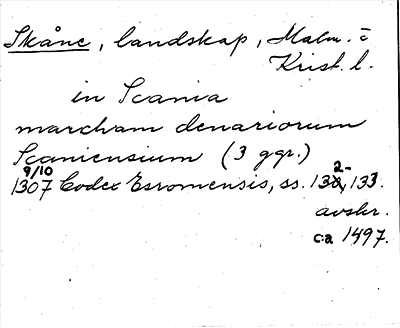 Skåne, landskap, Malm. o
Krist. l.
in Scania
marcham denariorum
Scaniensium (3 ggr.)
9/10
1307 Codex Esromensis, ss. 132-133.
avskr.
ca 1497.